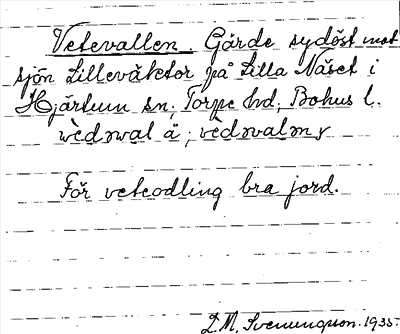 Vetevallen. Gärde sydöst mot
sjön Lilleväktor på Lilla Näset i
Hjärtum sn; Torpe hd; Bohus l.
vèdəwal ä; vèdəvalən,
För veteodling bra jord.
L.M. Svenungson. 1935.